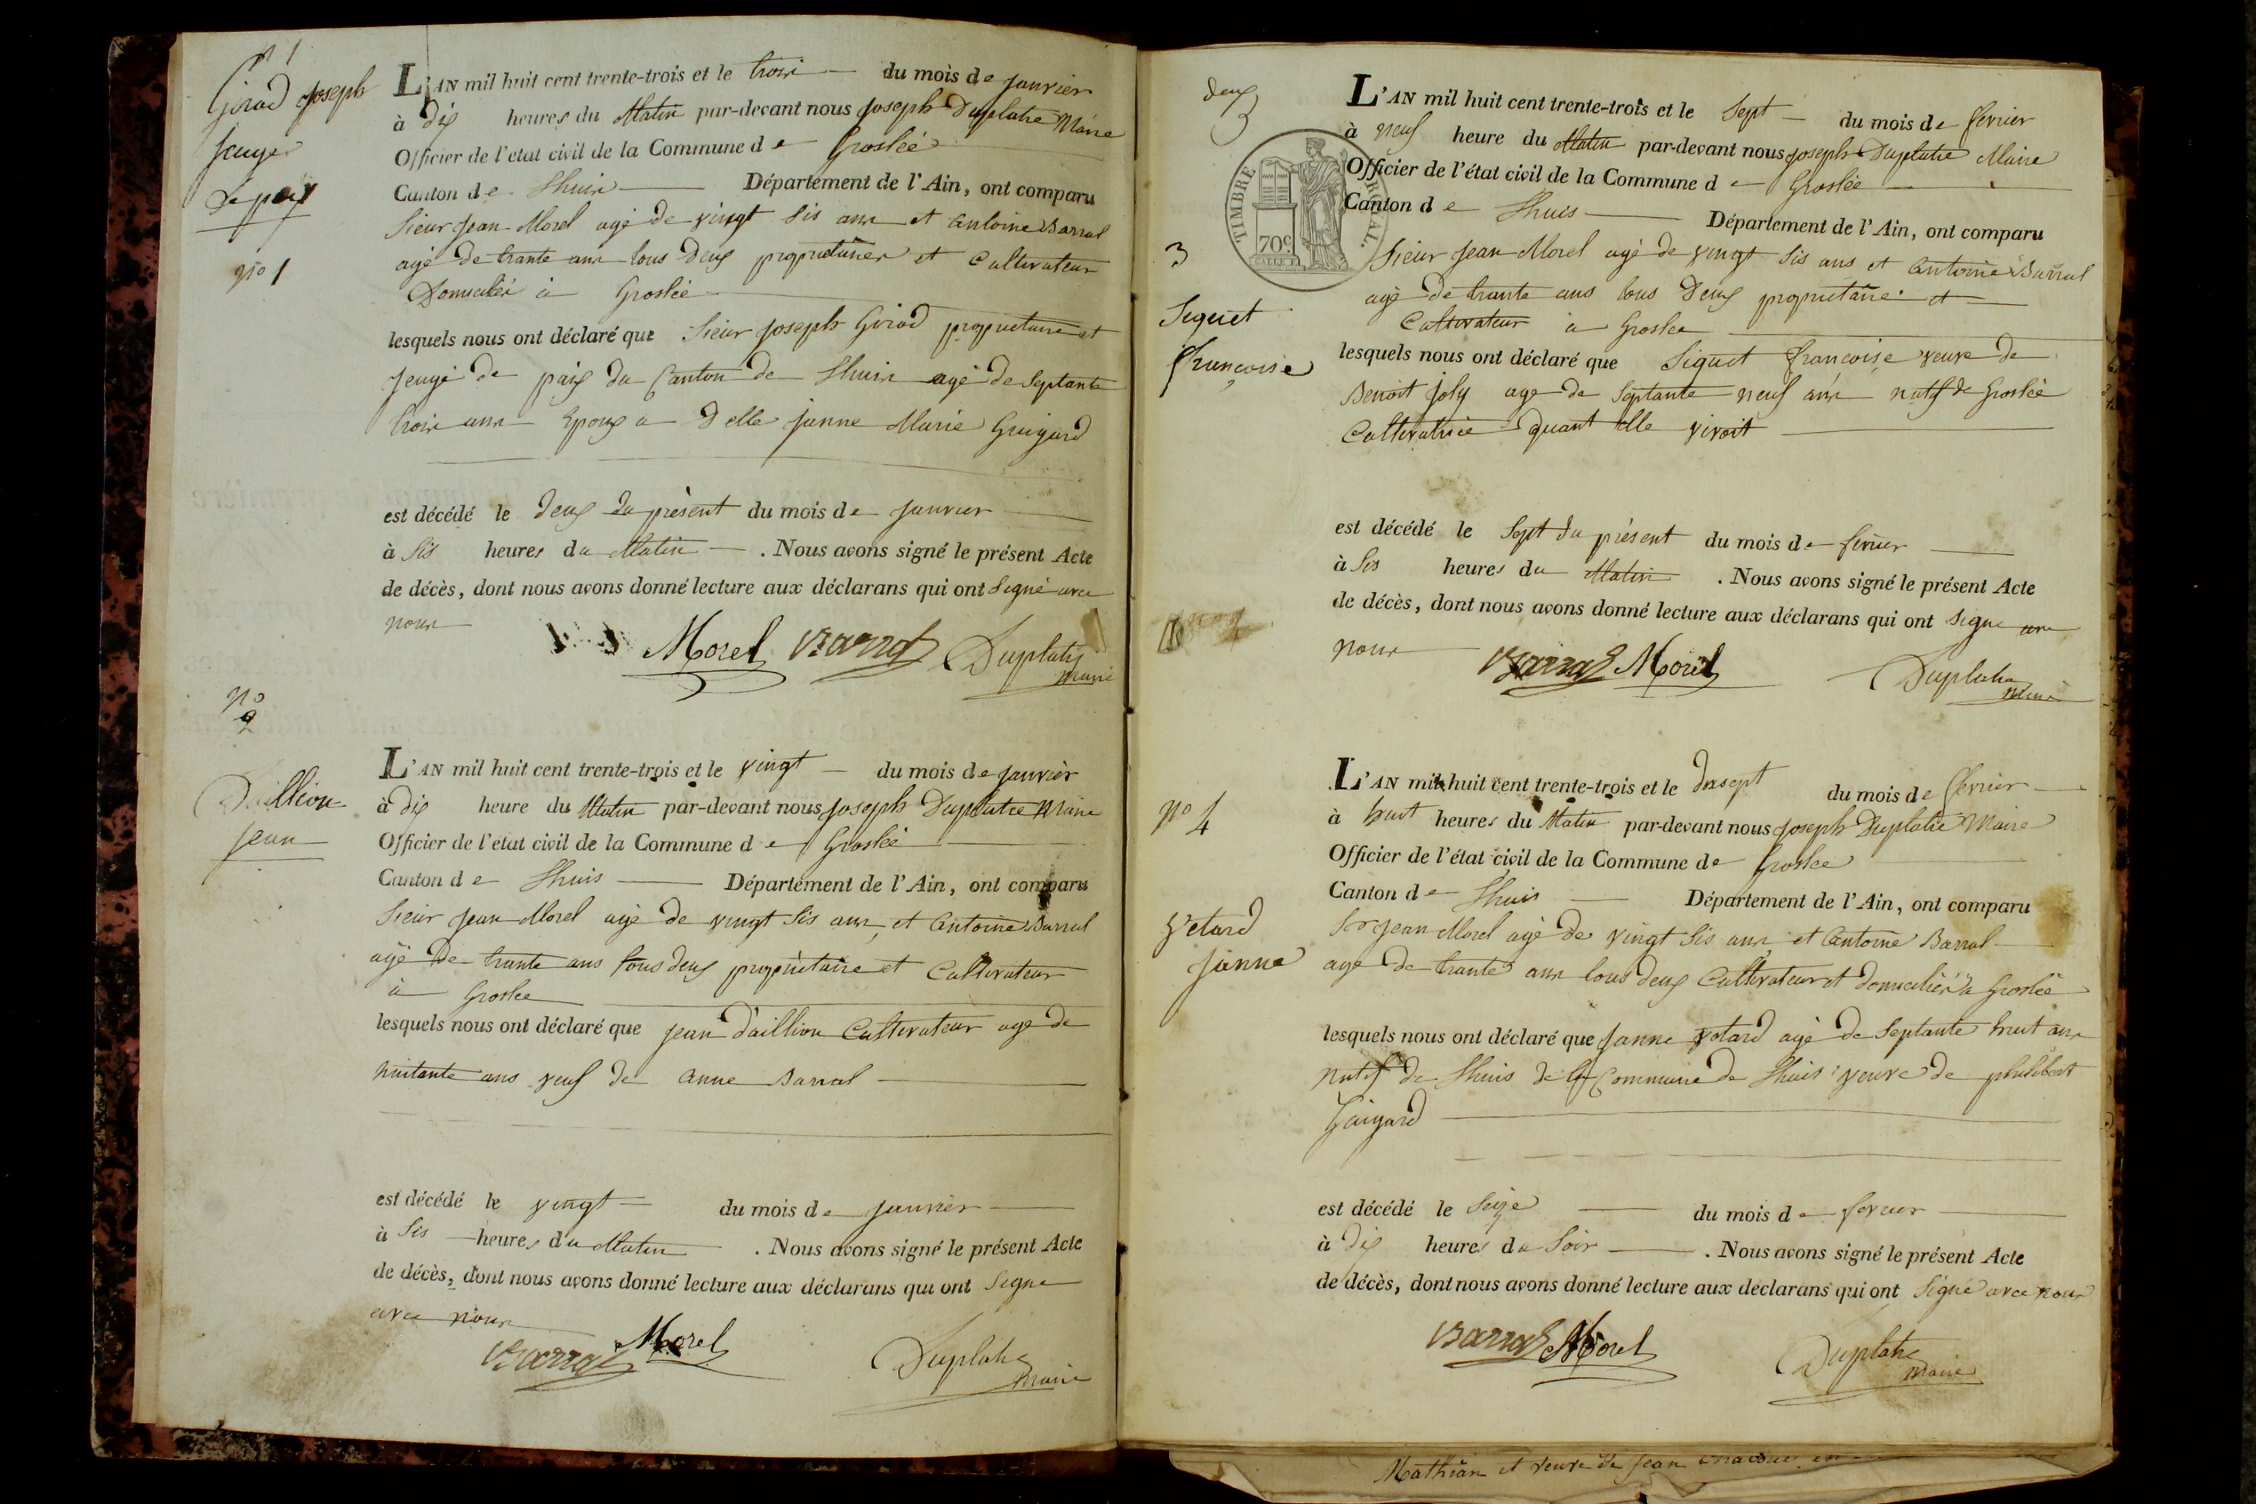 n 1
Girod Joseph
Jeuge
De paix
N° 1
L'AN mil huit cent trente-trois et le trois du mois de Janvier
à dix heures du Matin par-devant nous Joseph Duplatre Maire
Officier de l'état civil de la Commune de Groslée
Canton de Lhuis Département de l'Ain, ont comparu
Sieur Jean Morel agé de vingt sis ans et Antoine Barral
agé de trante ans tous deux propriétaires et Cultivateur
Domiciliés à Groslée
lesquels nous ont déclaré que Sieur Joseph Girod propriétaire et
Jeuge de paix du Canton de Lhuis agé de Septante
trois ans Epoux a Delle Janne Marie Guigard
est décédé le deux du présent du mois de Janvier
à Sis heures du Matin. Nous avons signé le présent Acte
de décès, dont nous avons donné lecture aux déclarans qui ont Signé avec
nous
Morel Barral Duplatre
Maire
N°
2
Daillion
Jean
L'AN mil huit cent trente-trois et le vingt du mois de Janvier
à dix heure du Matin par-devant nous Joseph Duplatre Maire
Officier de l'état civil de la Commune de Groslée
Canton de Lhuis Département de l'Ain, ont comparu
Sieur Jean Morel agé de vingt sis ans, et Antoine Barral
agé de trante ans tous deux propriétaire et Cultivateur
à Groslee
lesquels nous ont déclaré que Jean Daillion Cultivateur age de
huitante ans veuf de Anne Barral
est décédé le vingt du mois de Janvier
à Sis heures du Matin. Nous avons signé le présent Acte
de décès, dont nous avons donné lecture aux déclarans qui ont Signe
avec nous
Barral Morel Duplatre
Maire
deux
TIMBRE ROYAL.
70c
3
Siguet
Françoise
L'AN mil huit cent trente-trois et le Sept du mois de fevrier
à neuf heure du Matin par-devant nous Joseph Duplatre Maire
Officier de l'état civil de la Commune de Groslée
Canton de Lhuis Département de l'Ain, ont comparu
Sieur Jean Morel agé de vingt sis ans et Antoine Barral
agé de trante ans tous deux propriétaire et
Cultivateur à Groslee
lesquels nous ont déclaré que Siguet françoise veuve de
Benoit Joly age de Septante neuf ans natif de Groslée
Cultivatrice quant elle vivoit
est décédé le Sept du présent du mois de fevrier
à Sis heures du Matin. Nous avons signé le présent Acte
de décès, dont nous avons donné lecture aux déclarans qui ont Signe avec
nous
Barral Morel Duplatre
Maire
N° 4
Vetard
Janne
L'AN mil huit cent trente-trois et le disept du mois de fevrier
à huit heures du Matin par-devant nous Joseph Duplatre Maire
Officier de l'état civil de la Commune de Groslee
Canton de Lhuis Département de l'Ain, ont comparu
Sr Jean Morel agé de vingt sis ans et Antoine Barral
age de trante ans tous deux Cultivateur et domiciliés à Groslée
lesquels nous ont déclaré que Janne Vetard agé de Septante huit ans
natif de Lhuis de la Commune de Lhuis veuve de philibert
Guigard
est décédé le Seize du mois de fevrier
à dix heures du Soir. Nous avons signé le présent Acte
de décès, dont nous avons donné lecture aux déclarans qui ont Signé avec nous
Barral Morel Duplatre
Maire
Mathian et veuve de Jean